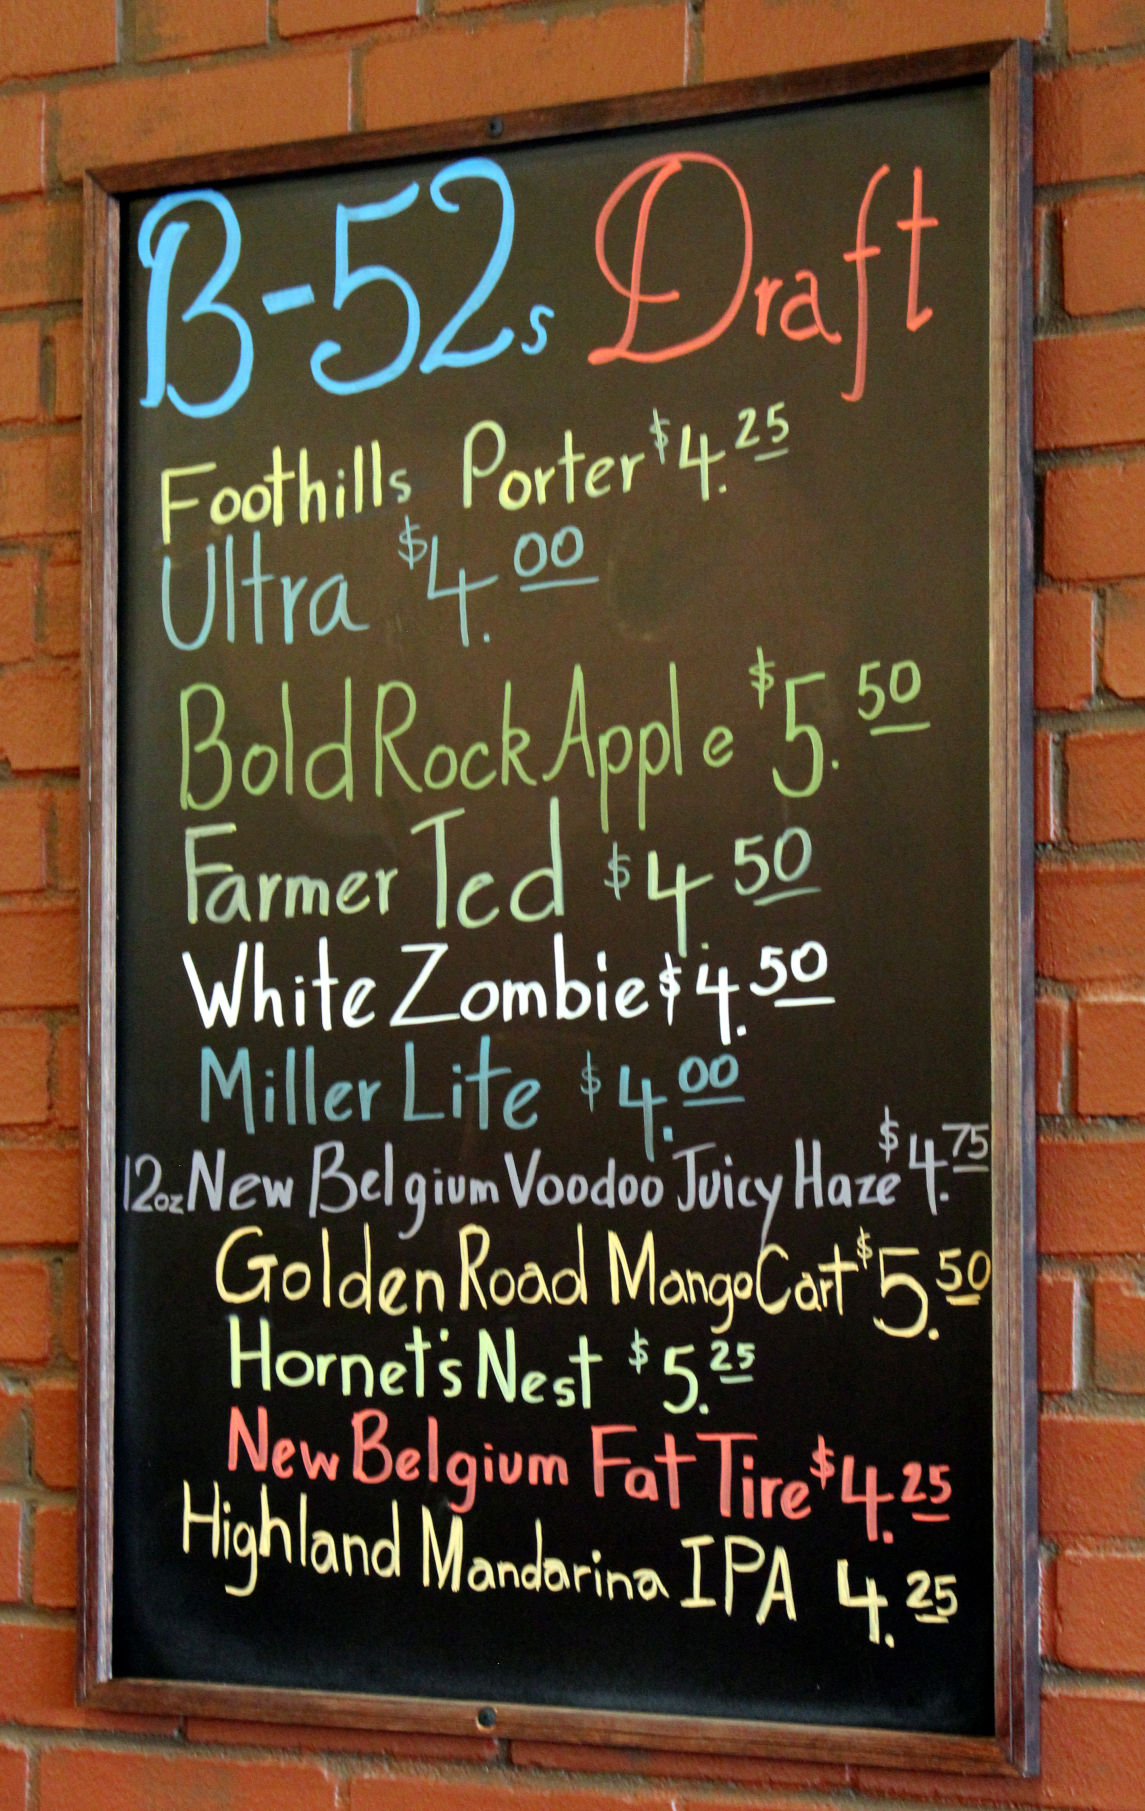 B-52s Draft
Foothills Porter $4.25
Ultra $4.00
Bold Rock Apple $5.50
Farmer Ted $4.50
White Zombie $4.50
Miller Lite $4.00
12oz New Belgium Voodoo Juicy Haze $4.75
Golden Road Mango Cart $5.50
Hornet's Nest $5.25
New Belgium Fat Tire $4.25
Highland Mandarina IPA 4.25